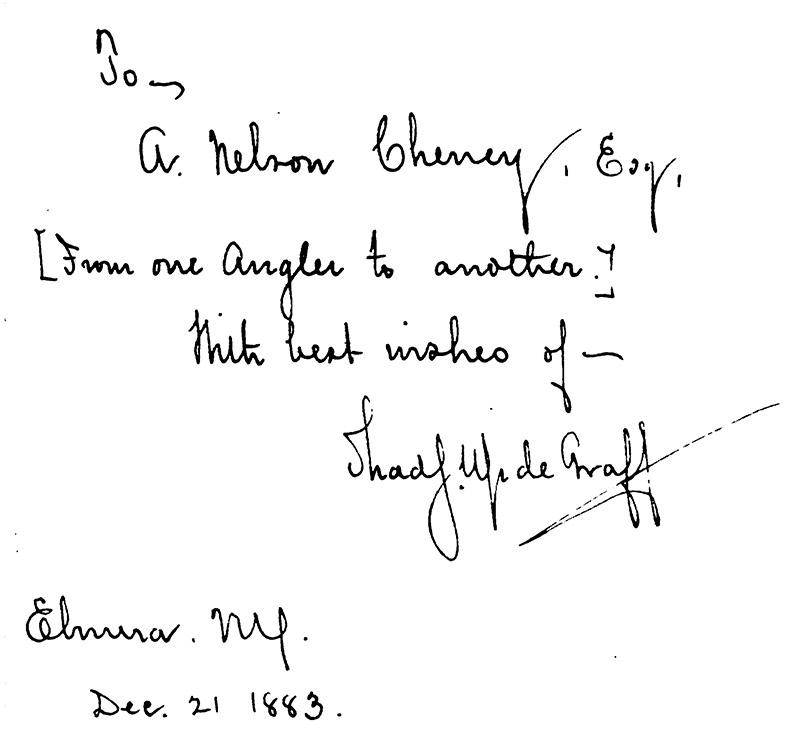 To —
A. Nelson Cheney, Esq,
[From one Angler to another.]
With best wishes of —
Thad S. Up de Graff
Elmira. NY.
Dec. 21 1883.